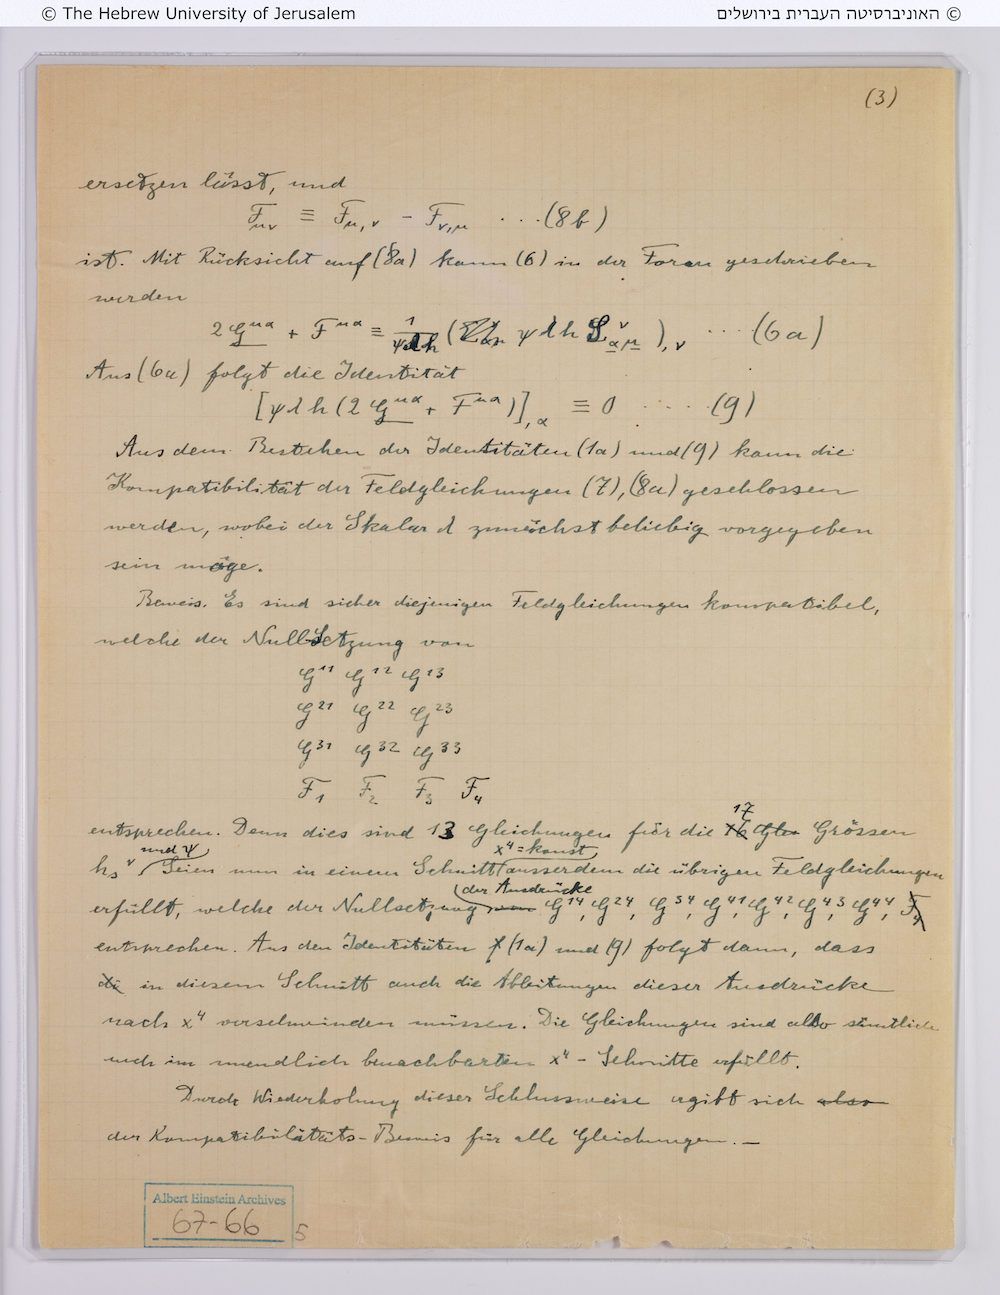 © The Hebrew University of Jerusalem
© האוניברסיטה העברית בירושלים
(3)
ersetzen lässt, und
F_μν ≡ F_μ,ν - F_ν,μ ... (8b)
ist. Mit Rücksicht auf (8a) kann (6) in der Form geschrieben
werden
2 G^μα + F^μα ≡ 1/ψλh ( ψ λ h L^ν_αμ ),ν ... (6a)
Aus (6a) folgt die Identität
[ψ λ h (2 G^μα + F^μα)],α ≡ 0 .... (9)
Aus dem Bestehen der Identitäten (1a) und (9) kann die
Kompatibilität der Feldgleichungen (7), (8a) geschlossen
werden, wobei der Skalar λ zunächst beliebig vorgegeben
sein möge.
Beweis. Es sind sicher diejenigen Feldgleichungen kompatibel,
welche der Nullsetzung von
G^11 G^12 G^13
G^21 G^22 G^23
G^31 G^32 G^33
F_1 F_2 F_3 F_4
17
entsprechen. Denn dies sind 13 Gleichungen für die 16 Grössen
und ψ x^4 = konst
h_s^ν Seien nun in einem Schnitt ausserdem die übrigen Feldgleichungen
der Ausdrücke
erfüllt, welche der Nullsetzung von G^14, G^24, G^34, G^41, G^42, G^43, G^44, F_4
entsprechen. Aus den Identitäten (1a) und (9) folgt dann, dass
die in diesem Schnitt auch die Ableitungen dieser Ausdrücke
nach x^4 verschwinden müssen. Die Gleichungen sind also sämtlich
auch im unendlich benachbarten x^4-Schnitte erfüllt.
Durch Wiederholung dieser Schlussweise ergibt sich also
der Kompatibilitäts-Beweis für alle Gleichungen. —
Albert Einstein Archives
67-66
5